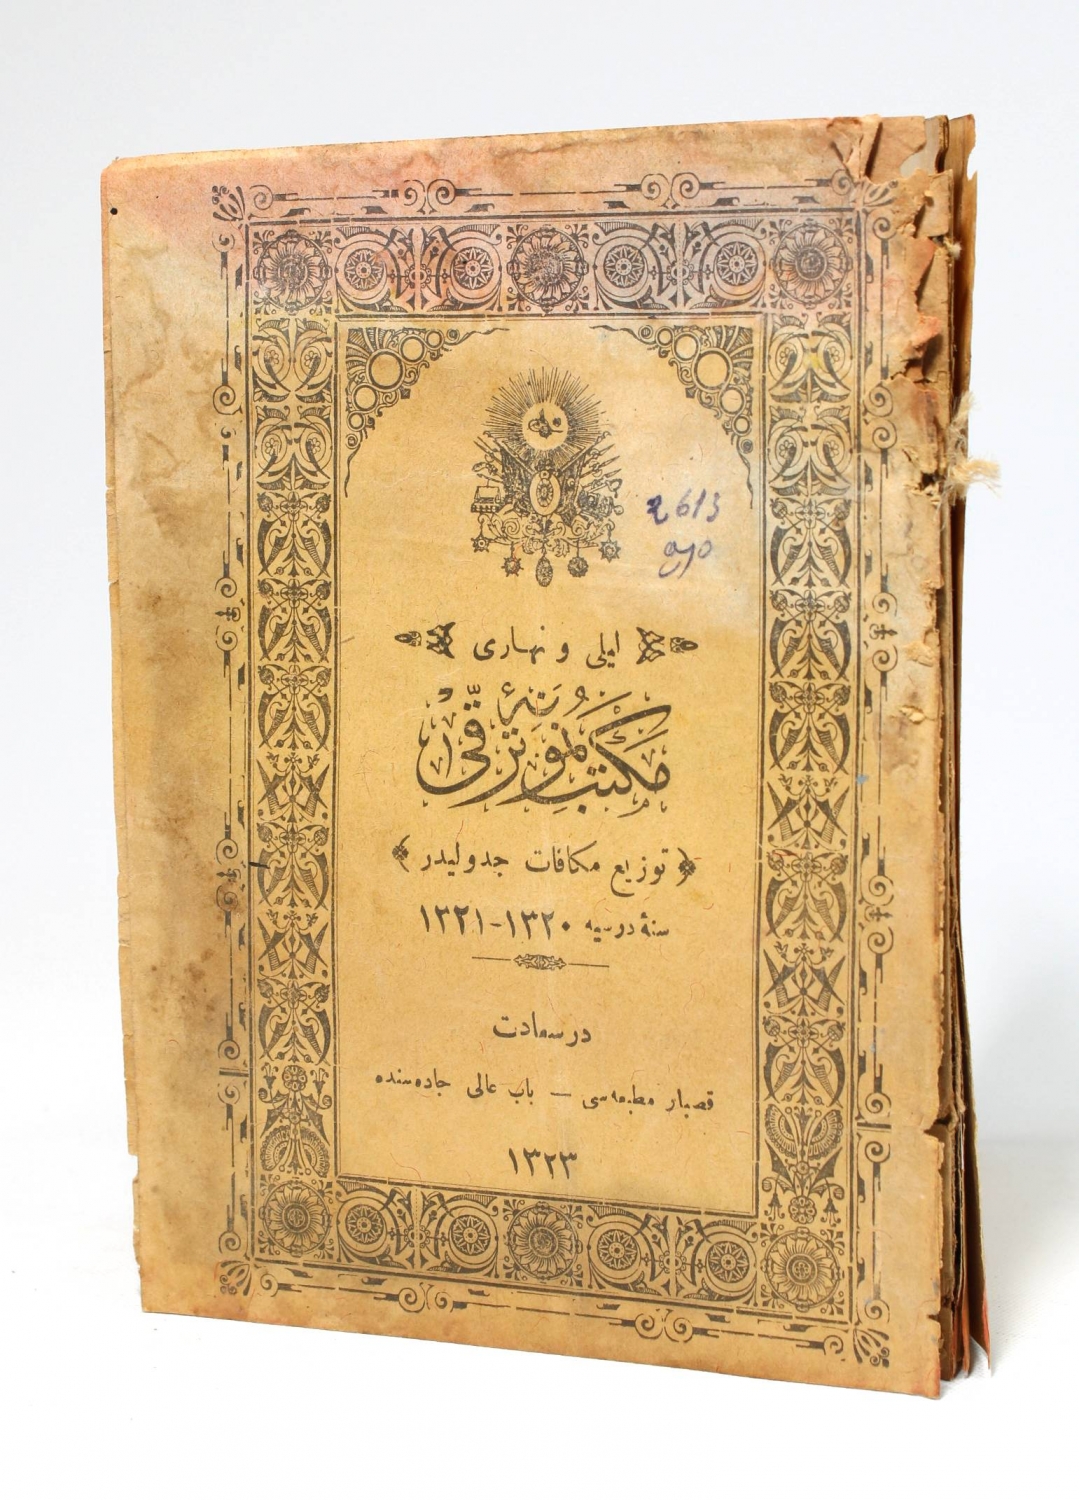 2613
لیلی و نهاری
مكتب نمونهٔ ترقی
توزیع مكافات جدولیدر
سنهٔ درسیه ١٣٢٠-١٣٢١
درسعادت
قصبار مطبعه‌سی — باب عالی جاده‌سنده
١٣٢٣